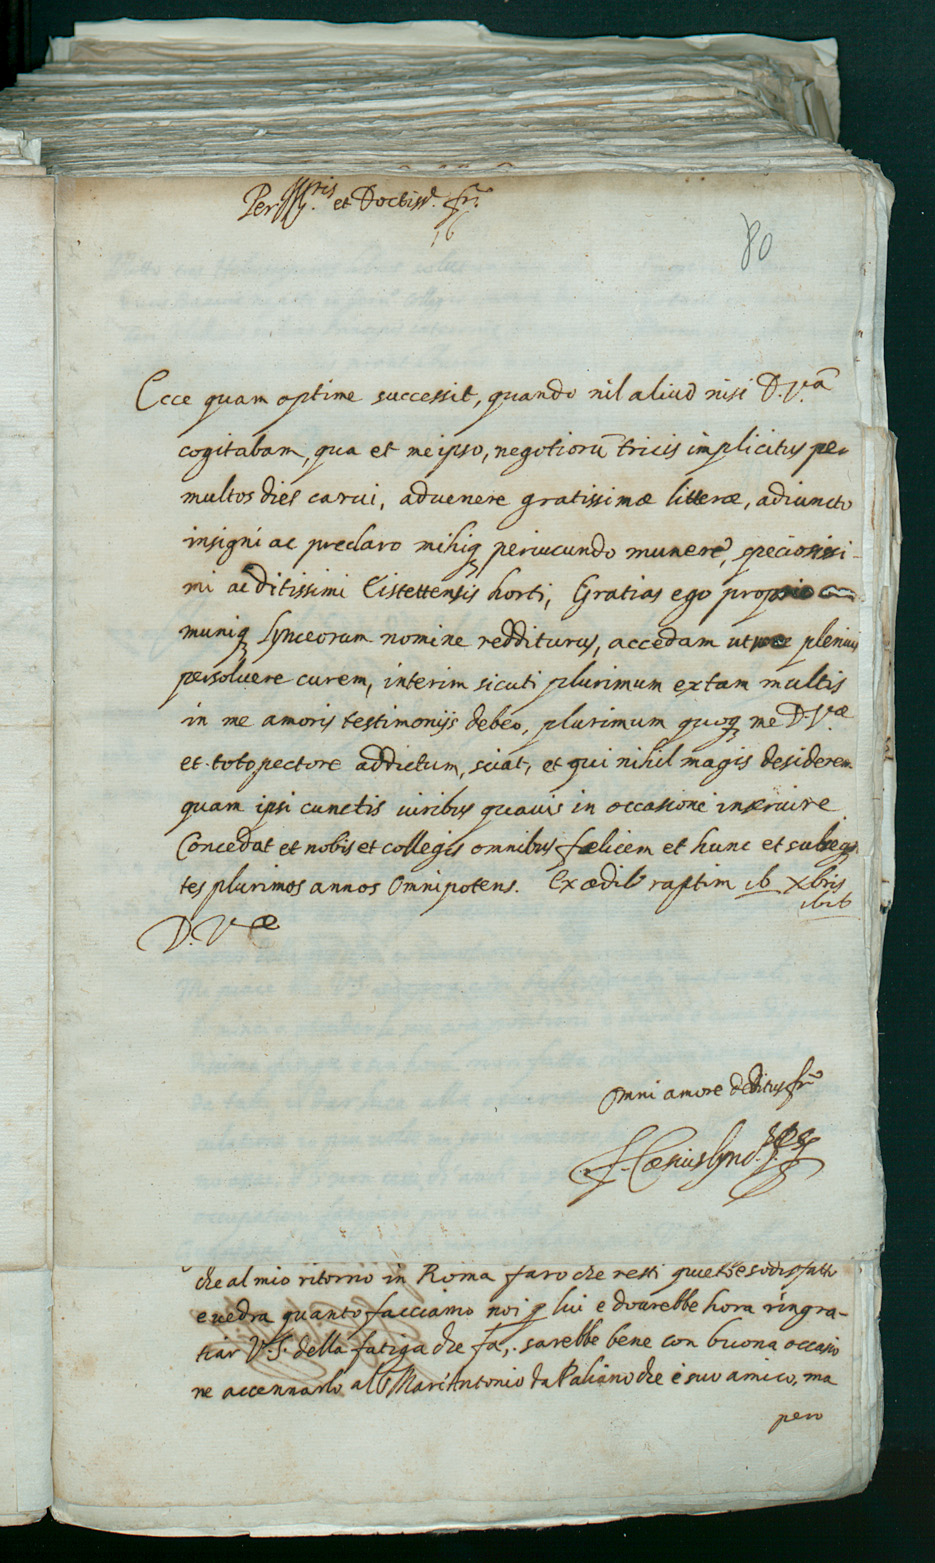 Per Ill.ris et Doctiss.e fr.
16
80
Ecce quam optime successit, quando nil aliud nisi D.V.ā
cogitabam, qua et me ipso, negotiorū tricis implicitus per
multos dies carui, aduenere gratissimæ litteræ, adiuncto
insigni ac preclaro mihiq periucundo munere, speciosissi-
mi ac ditissimi Eistettensis horti, Gratias ego proprio com
muniq Lynceorum nomine redditurus, accedam ut plenius
persoluere curem, interim sicuti plurimum ex tam multis
in me amoris testimonijs debeo, plurimum quoq me D.V.æ
et toto pectore addictum, sciat, et qui nihil magis desiderem
quam ipsi cunctis uiribus quauis in occasione inseruire
Concedat et nobis et collegis omnibus fælicem et hunc et subseqē
tes plurimos annos Omnipotens. Ex ædib raptim 16 Xbris
1616
D. V.æ
Omni amore deditus fr.
F. Cæsius Lync.
che al mio ritorno in Roma faro che resti quieto e sodisfatto
e uedra quanto facciamo noi p lui e dourebbe hora ringra-
tiar V.S. della fatiga che fa, sarebbe bene con buona occasio
ne accennarlo al Marc'Antonio da Paliano che è suo amico, ma
pero